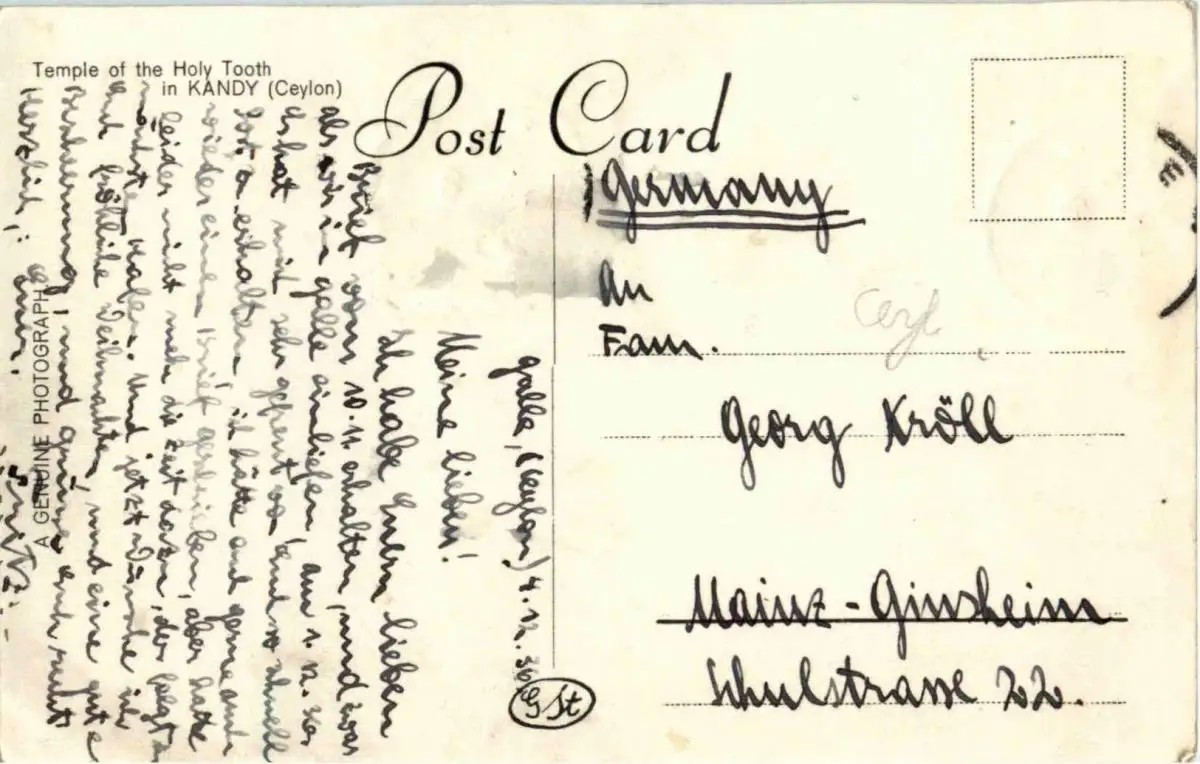 Temple of the Holy Tooth
in KANDY (Ceylon)
Post Card
A GENUINE PHOTOGRAPH
Galle, (Ceylon) 4.12.36
Meine lieben!
Ich habe Euern lieben
Brief vom 10.11. erhalten, und zwar
als wir in Galle einliefen, am 1.12. 36
es hat mich sehr gefreut von Euch so schnell
Post zu erhalten, ich hätte auch gerne auch
wieder einen Brief geschrieben, aber hatte
leider nicht mehr die Zeit dazu, der folgt
nächste Und jetzt Wünsche ich
Euch fröhliche Weihnachten, und eine gute
Bescherung, und grüsse euch recht
Herzlich,
Germany
An
Fam.
Georg Kröll
Mainz - Ginsheim
Schulstrasse 22.
Ceyl
G St
E